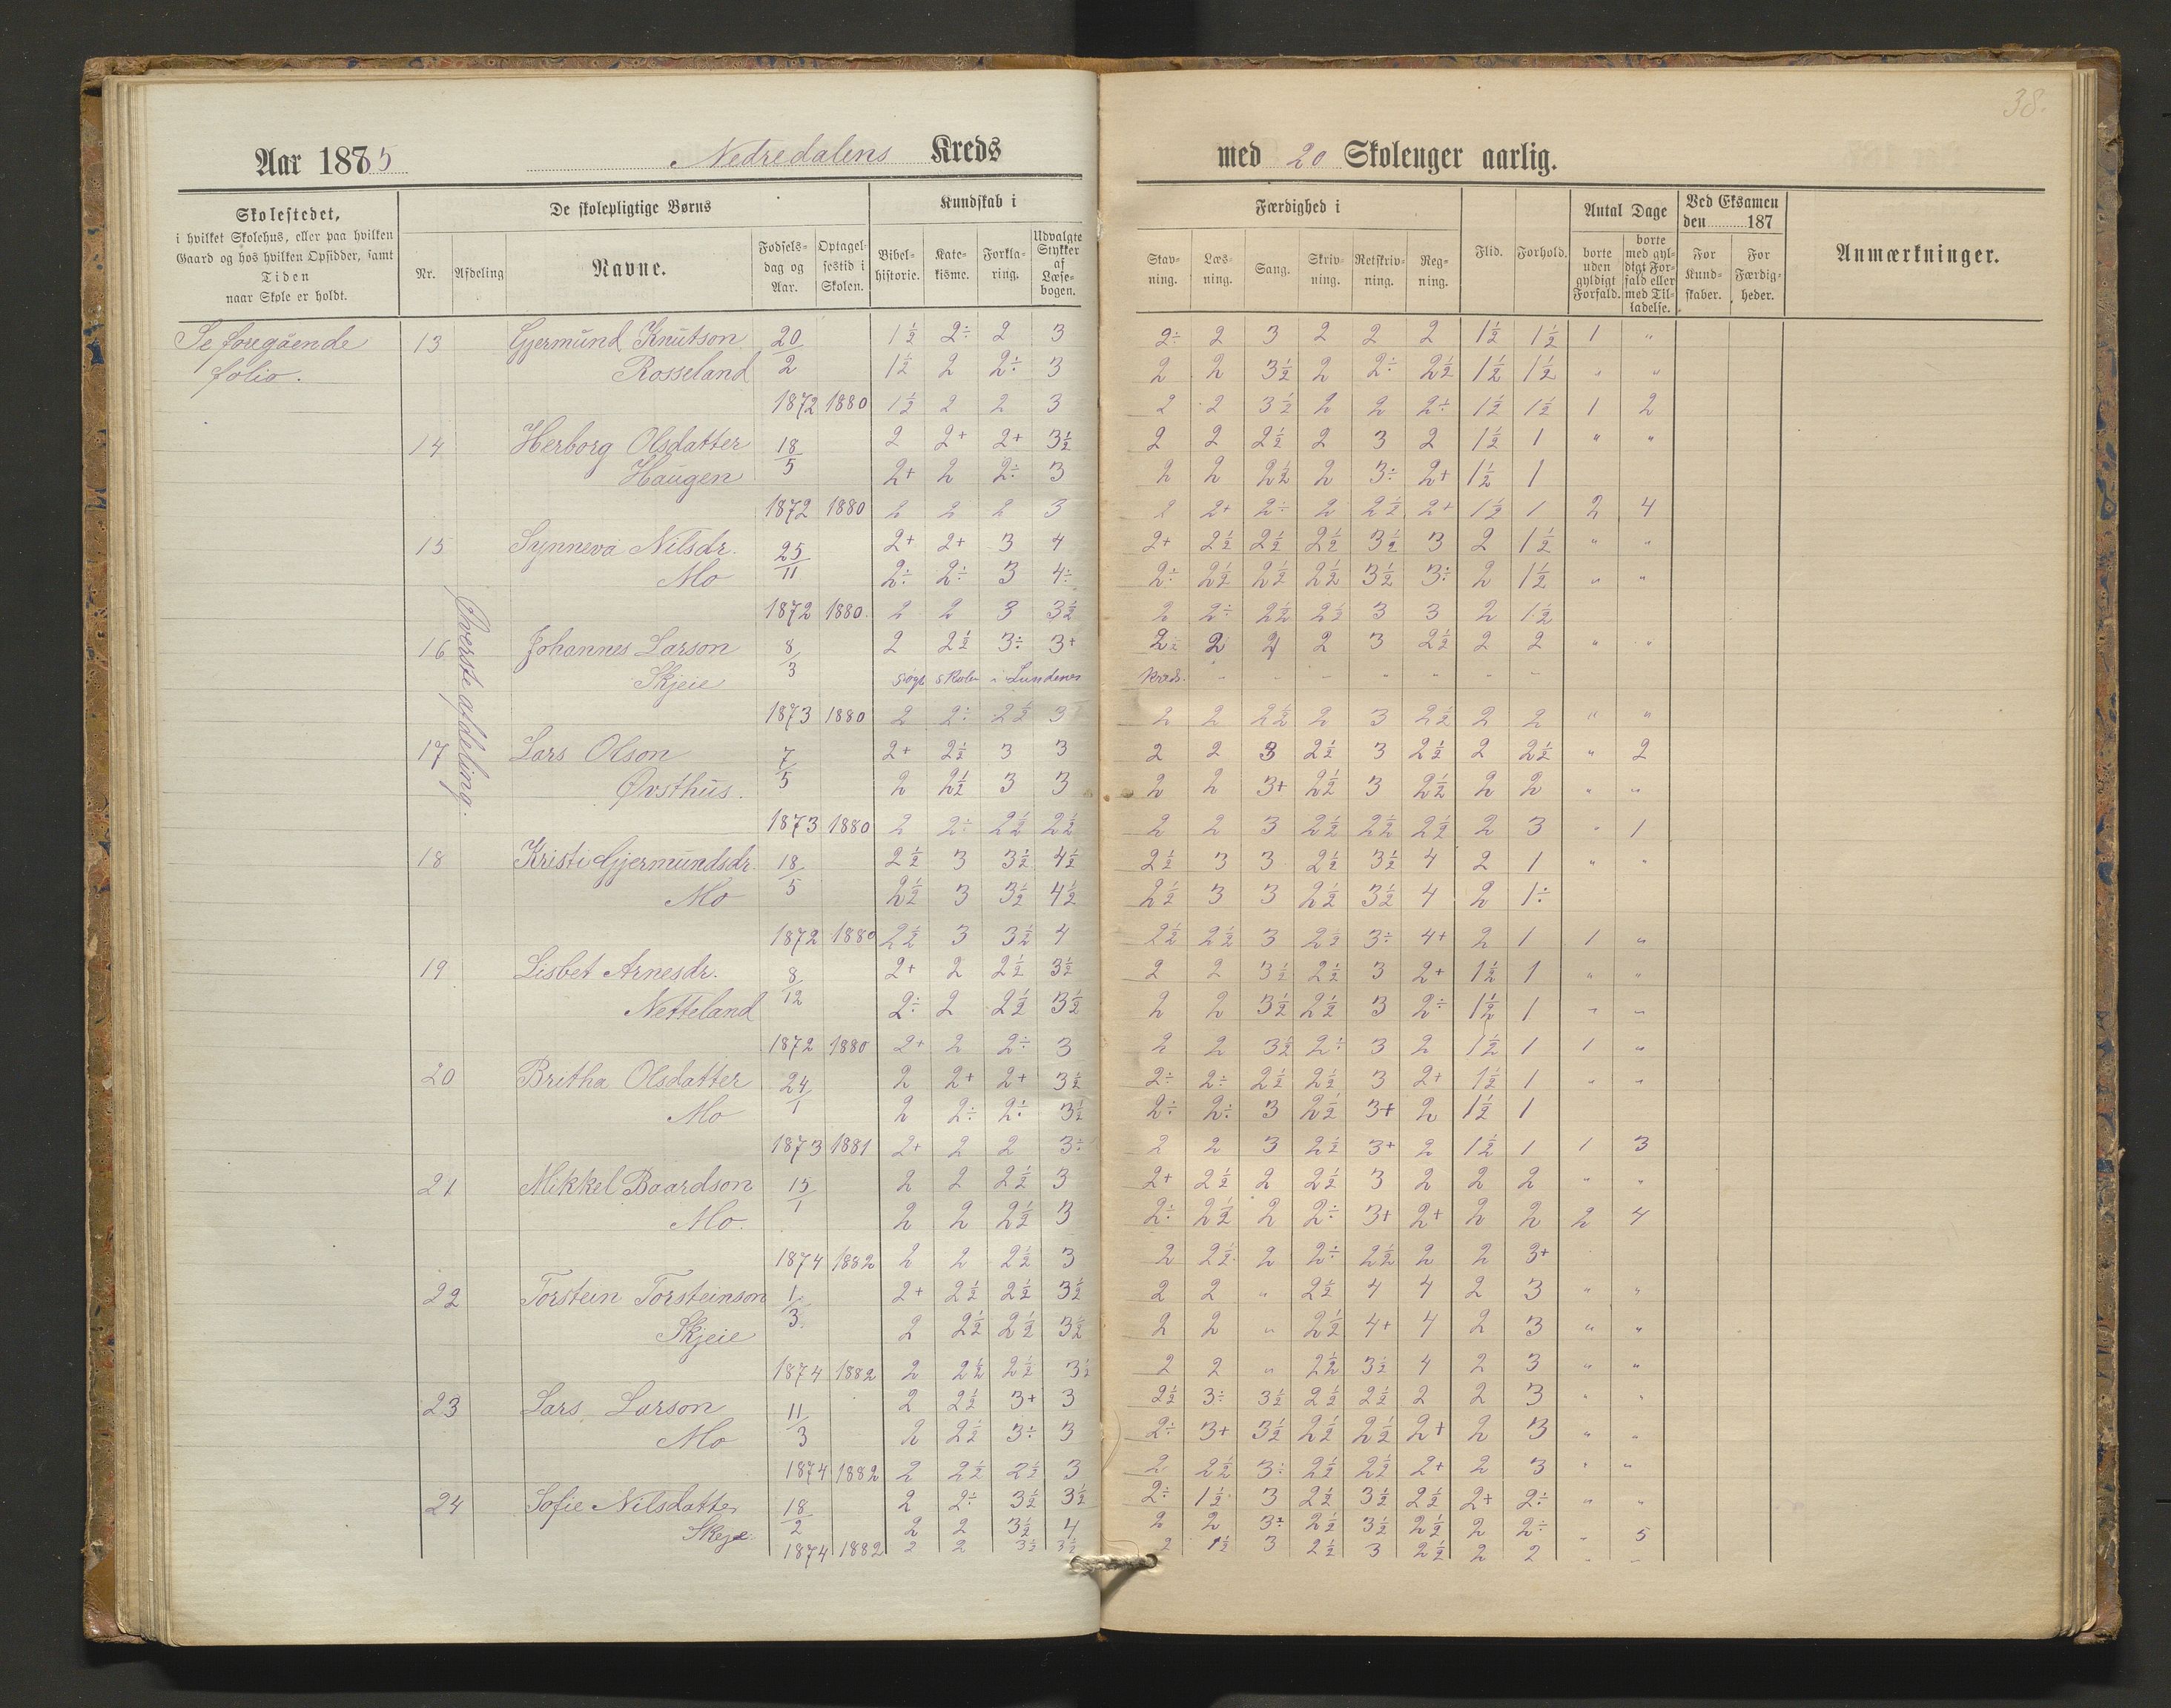 38.
Aar 1885 Nedredalens Kreds med 20 Skoleuger aarlig.
Skolestedet, i hvilket Skolehus, eller paa hvilken Gaard og hos hvilken Opsidder, samt Tiden naar Skole er holdt.
De skolepligtige Børns
Nr. Afdeling Navne. Fødselsdag og Aar. Optagelsestid i Skolen.
Kundskab i
Bibelhistorie. Katekisme. Forklaring. Udvalgte Stykker af Læsebogen.
Færdighed i
Stavning. Læsning. Sang. Skrivning. Retskrivning. Regning.
Flid. Forhold.
Antal Dage
borte uden gyldigt Forfald. borte med gyldigt Forfald eller med Tilladelse.
Ved Eksamen den 187
For Kundskaber. For Færdigheder.
Anmærkninger.
Se foregående folio.
Øverste afdeling.
13 Gjermund Knutson 20 1½ 2÷ 2 3 2÷ 2 3 2 2 2 1½ 1½ 1 "
Rosseland 2 1½ 2 2÷ 3 2 2 3½ 2 2÷ 2½ 1½ 1½ " "
1872 1880 1½ 2 2 3 2 2 3½ 2 2 2÷ 1½ 1½ 1 2
14 Herborg Olsdatter 18 2 2+ 2+ 3½ 2 2 2½ 2 3 2 1½ 1 " "
Haugen 5 2+ 2 2÷ 3 2 2 2½ 2 3÷ 2+ 1½ 1
1872 1880 2 2 2 3 2 2+ 2÷ 2 2½ 2+ 1½ 1 2 4
15 Synneva Nilsdr. 25 2+ 2+ 3 4 2+ 2½ 2½ 2½ 3½ 3 2 1½ " "
Mo 11 2÷ 2÷ 3 4÷ 2÷ 2½ 2½ 2½ 3½ 3÷ 2 1½ " "
1872 1880. 2 2 3 3½ 2 2÷ 2½ 2½ 3 3 2 1½
16 Johannes Larson 8 2 2½ 3÷ 3+ 2÷ 2 2 2 3 2½ 2 2 " "
Skjeie 3 søgt skolen i Lundenes kreds. " " " " " " "
1873 1880 2 2÷ 2½ 3 2 2 2½ 2 3 2½ 2 2 " "
17 Lars Olson 7 2+ 2½ 3 3 2 2 3 2½ 3 2½ 2 2½ " 2
Øvsthus. 5 2 2½ 3 3 2 2 3+ 2½ 3 2½ 2 2 " "
1873 1880 2 2÷ 2½ 2½ 2 2 3 2½ 2½ 2½ 2 3 " 1
18 Kristi Gjermundsdr. 18 2½ 3 3½ 4½ 2½ 3 3 2½ 3½ 4 2 1 " "
Mo 5 2½ 3 3½ 4½ 2½ 3 3 2½ 3½ 4 2 1÷
1872 1880 2½ 3 3½ 4 2½ 2½ 3 2½ 3÷ 4+ 2 1 1 "
19 Lisbet Arnesdr. 8 2+ 2 2½ 3½ 2 2 3½ 2½ 3 2+ 1½ 1 " "
Netteland 12 2÷ 2 2½ 3½ 2 2 3½ 2½ 3 2÷ 1½ 1 " "
1872 1880 2+ 2 2÷ 3 2 2 3½ 2÷ 3 2 1½ 1 1 "
20 Britha Olsdatter 24 2 2+ 2+ 3½ 2÷ 2÷ 2½ 2½ 3 2+ 1½ 1 " "
Mo 1 2 2÷ 2÷ 3½ 2÷ 2÷ 3 2½ 3+ 2 1½ 1
1873 1881 2+ 2 2 3÷ 2 2 3 2½ 3+ 2 1½ 1 1 3
21 Mikkel Baardson 15 2 2 2½ 3 2+ 2½ 2 2½ 3 2 2 2 " "
Mo. 1 2 2 2½ 3 2÷ 2½ 2 2÷ 3+ 2+ 2 2 2 4
1874 1882 2 2 2½ 3 2 2½ 2 2÷ 2½ 2 2 3+
22 Torstein Torsteinson 1 2+ 2½ 2½ 3½ 2 2 " 2½ 4 4 2 3 " "
Skjeie 3 2 2½ 2½ 3½ 2 2 " 2½ 4+ 4 2 3 " "
1874 1882 2 2½ 2½ 3½ 2 2 " 2½ 3½ 4 2 3 " "
23 Lars Larson 11 2 2½ 3+ 3 2½ 3÷ 3½ 2½ 2½ 2 2 3 " "
Mo 3 2 2½ 3÷ 3 2÷ 3+ 3½ 2½ 2½ 2+ 2 3 " "
1874 1882 2 2½ 2½ 3 2 2½ 3÷ 2½ 2½ 2+ 2 3 " "
24 Sofie Nilsdatter 18 2 2÷ 3½ 3½ 2÷ 1½ 3 2½ 3½ 2½ 2+ 2÷ " "
Skeje 2 2 2 3½ 4 2 2 3÷ 2½ 3½ 2½ 2 2÷ " 5
1874 1882 2 2 3½ 3½ 2 1½ 3 2½ 3 2½ 2 2 " "